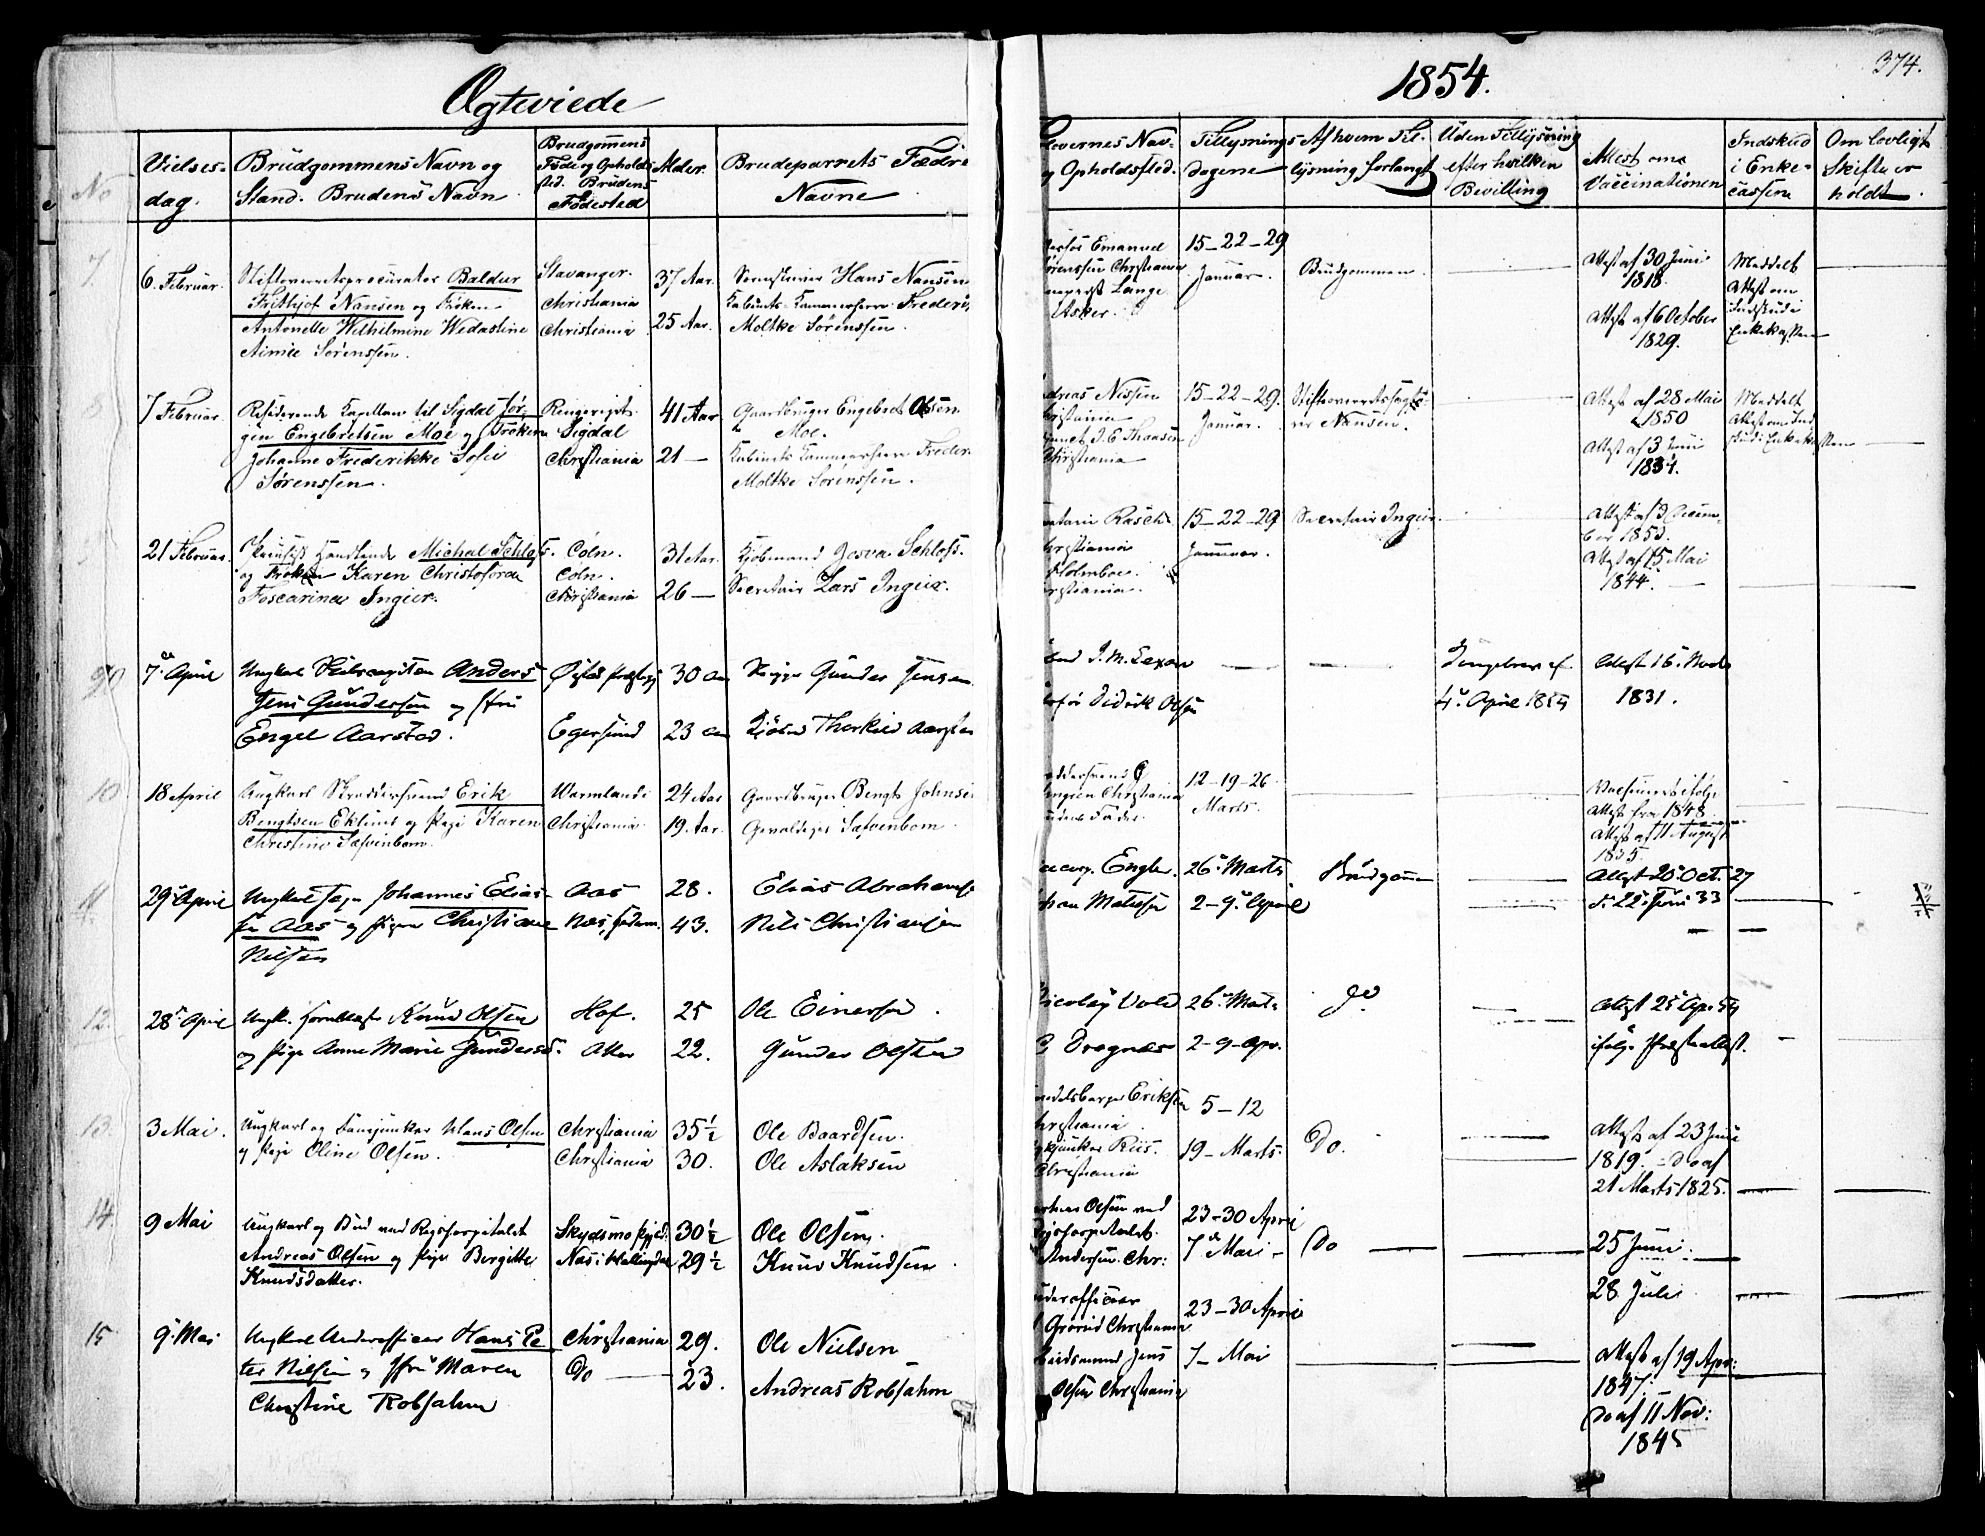 Ægteviede
1854.
374.
No
Vielses-
dag.
Brudgommens Navn og
Stand. Brudens Navn
Brudgommens
Føde og Opholds
sted. Brudens
Fødested
Alder.
Brudeparrets Fædre
Navne
lovernes Nav-
g Opholdssted.
Tillysnings-
dagene
Af hvem Til-
lysning forlangt
Uden Tillysning
efter hvilken
Bevilling
Attest om
Vaccinationen
Indskud
i Enke-
cassen
Om lovligt
Skifte er
holdt
7.
6. Februar.
Stiftsoverretsprocurator Baldur
Frithjof Nansen og Frøken
Antonette Wilhelmine Wedastine
Aimée Sørenssen.
Stavanger.
Christiania
Christiania
37 Aar.
25 Aar.
Hans Nansen
Kabinets-Kammerherre Frederi
Moltke Sørenssen.
Emanuel
ørenssen Christiania
Lange
Asker.
15-22-29
Januar.
Brudgommen.
Attest af 30 Juni
1818.
Attest af 6 October
1829.
Meddelt
Attest om
Indskud i
Enkekassen
8
7 Februar.
Residerende Kapellan til Sigdal Jør-
gen Engebretsen Moe og Frøken
Johanne Frederikke Sofie
Sørenssen.
Ringeriget.
Sigdal
Christiania
41 Aar
21 —
Gaardbruger Engebret Olsen
Moe.
Kabinets Kammerherre Freder
Moltke Sørenssen.
dreas Nissen
hristiania
J. C. Thaasen
Christiania
15-22-29.
Januar.
Stiftsoverretssagfø-
rer Nansen.
Attest af 28 Mai
1850
Attest af 3 Juni
1834.
Meddelt
Attest om Ind
skud i Enkekassen
21 Februar.
Handlende Michal Schloss.
og Frøken Karen Christofora
Foscarina Ingier.
Cöln.
Cöln.
Christiania
31 Aar.
26 —
Kjøbmand Josva Schloss.
Secretair Lars Ingier.
retair Rasch
hristiania
Holmboe.
ristiania.
15-22-29
Januar.
Secretair Ingier.
Attest af 3 Decem-
ber 1853.
Attest af 15 Mai
1844.
7de April
Ungkarl Anders
Jens Gundersen og Jfru
Engel Aarstad.
Egersund
30 aar
23 aar
Gunder Jensen
Kjøbmd Therkild Aarstad
J. M. Lexow
Didrik Olsen
Kongebrev af
4de April 1854
Attest 16de Novb
1831.
10
18 April
Ungkarl Skræddersvend Erik
Bengtsen Eklund og Pige Karen
Christine Safvenbom.
Warmland
Christiania
24 Aar
19. Aar.
Gaardbruger Bengt Johnse
Safvenbom.
ræddersvend C
Christiania
udens Fader.
12-19-26
Marts.
Vaccineret ifølge
Attest fra 1848.
Attest af 11 August
1835.
11.
29de April
Ungkarl Johannes Elias-
sen Aas og Pigen Christiane
Nilsen
Aas
Næs, Hedem.
28.
43.
Elias Abrahamse
Nils Christiansen
Engh.
han Matesen
26de Marts
2-9de April
Brudgom
Attest 20de Oct. 27
d. 22de Juni 33
12
28de April
Ungk. Hornblæser Knud Olsen
og Pige Anne Marie Gunders.
Hof.
Aker
25
22.
Ole Einersen.
Gunder Olsen
Nicolay Vold
C Dregnæs
26de Marts
2-9-Apr.
do.
Attest 25de Apr. 54
ifølge Præsteattest.
13.
3 Mai.
Ungkarl og Landjunker Hans Olsen
og Pige Oline Olsen.
Christiania
Christiania
35½
30.
Ole Baardsen.
Ole Aslaksen
Eriksen
hristiania.
Riis.
Christiania
5-12
19-Marts.
Do.
Attest af 23 Juni
1819. - Do af
21 Marts 1825.
14.
9 Mai
Ungkarl og Bud ved Rigshospitalet
Andreas Olsen og Pige Bergitte
Knudsdatter.
Skydsmo Pgjld.
Næs i Hallingdal
30½
29½
Ole Olsen.
Knud Knudsen
Olsen ved
Rigshospitalet.
Andersen. Chr:
23-30 April
7de Mai-
Do
25 Juni.
28 Juli
15
9de Mai
Ungkarl Underofficeer Hans Pe-
ter Nilsen og Jfru Maren
Christine Robsahm
Christiania
Do —
29.
23.
Ole Nielsen
Andreas Robsahm
nderofficeer
Grorud Christiania
beidsmand Jens
Olsen Christiania
23-30 April
7-Mai
Attest af 19 Apr:
1847.
Do af 11 Nov:
1845